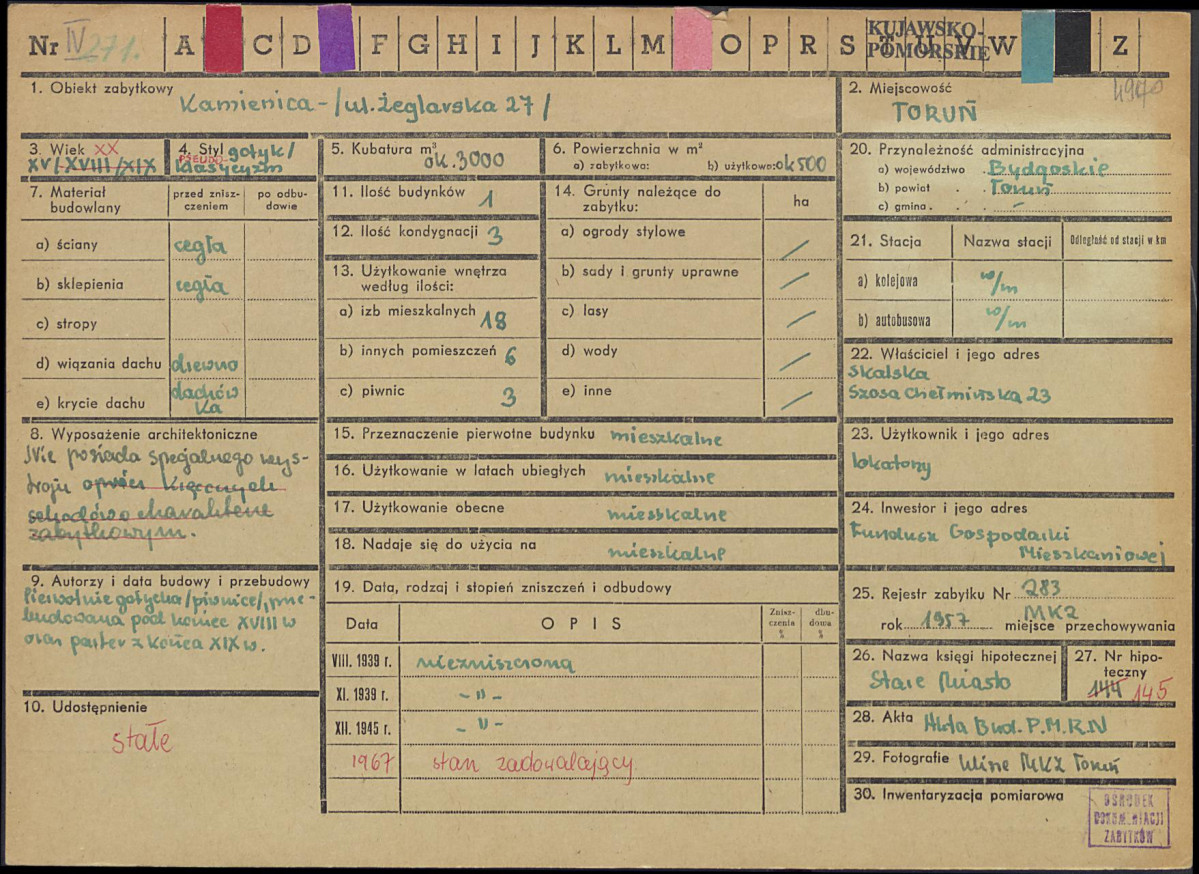 Nr IV 271.
A C D F G H I J K L M O P R S T U V W Z
KUJAWSKO-
POMORSKIE
1. Obiekt zabytkowy
Kamienica - /ul. Żeglarska 27/
2. Miejscowość
4940
TORUŃ
3. Wiek XX
XV/XVIII/XIX
4. Styl gotyk/
PSEUDO-
klasycyzm
5. Kubatura m³
ok. 3000
6. Powierzchnia w m²
a) zabytkowa: b) użytkowa: ok 500
7. Materiał budowlany
przed znisz-
czeniem
po odbu-
dowie
a) ściany cegła
b) sklepienia cegła
c) stropy
d) wiązania dachu drewno
e) krycie dachu dachów
ka
8. Wyposażenie architektoniczne
Nie posiada specjalnego wys-
troju oprócz kręconych
schodów o charakterze
zabytkowym.
9. Autorzy i data budowy i przebudowy
Pierwotnie gotycka /piwnice/, prze-
budowana pod koniec XVIII w
oraz parter z końca XIX w.
10. Udostępnienie
stałe
11. Ilość budynków 1
12. Ilość kondygnacji 3
13. Użytkowanie wnętrza
według ilości:
a) izb mieszkalnych 18
b) innych pomieszczeń 6
c) piwnic 3
14. Grunty należące do
zabytku:
ha
a) ogrody stylowe /
b) sady i grunty uprawne /
c) lasy /
d) wody /
e) inne /
15. Przeznaczenie pierwotne budynku mieszkalne
16. Użytkowanie w latach ubiegłych mieszkalne
17. Użytkowanie obecne mieszkalne
18. Nadaje się do użycia na mieszkalne
19. Data, rodzaj i stopień zniszczeń i odbudowy
Data
OPIS
Znisz-
czenia
%
dbu-
dowa
%
VIII. 1939 r. niezniszczona
XI. 1939 r. - " -
XII. 1945 r. - " -
1967 stan zadowalający
20. Przynależność administracyjna
a) województwo Bydgoskie
b) powiat Toruń
c) gmina -
21. Stacja
Nazwa stacji
Odległość od stacji w km
a) kolejowa w/m
b) autobusowa w/m
22. Właściciel i jego adres
Skalska
Szosa Chełmińska 23
23. Użytkownik i jego adres
lokatorzy
24. Inwestor i jego adres
Fundusz Gospodarki
Mieszkaniowej
25. Rejestr zabytku Nr 283
rok 1957 MKZ miejsce przechowywania
26. Nazwa księgi hipotecznej
Stare Miasto
27. Nr hipo-
teczny
144 145
28. Akta Akta Bud. P.M.R.N
29. Fotografie klisze MKZ Toruń
30. Inwentaryzacja pomiarowa
OŚRODEK
DOKUMENTACJI
ZABYTKÓW